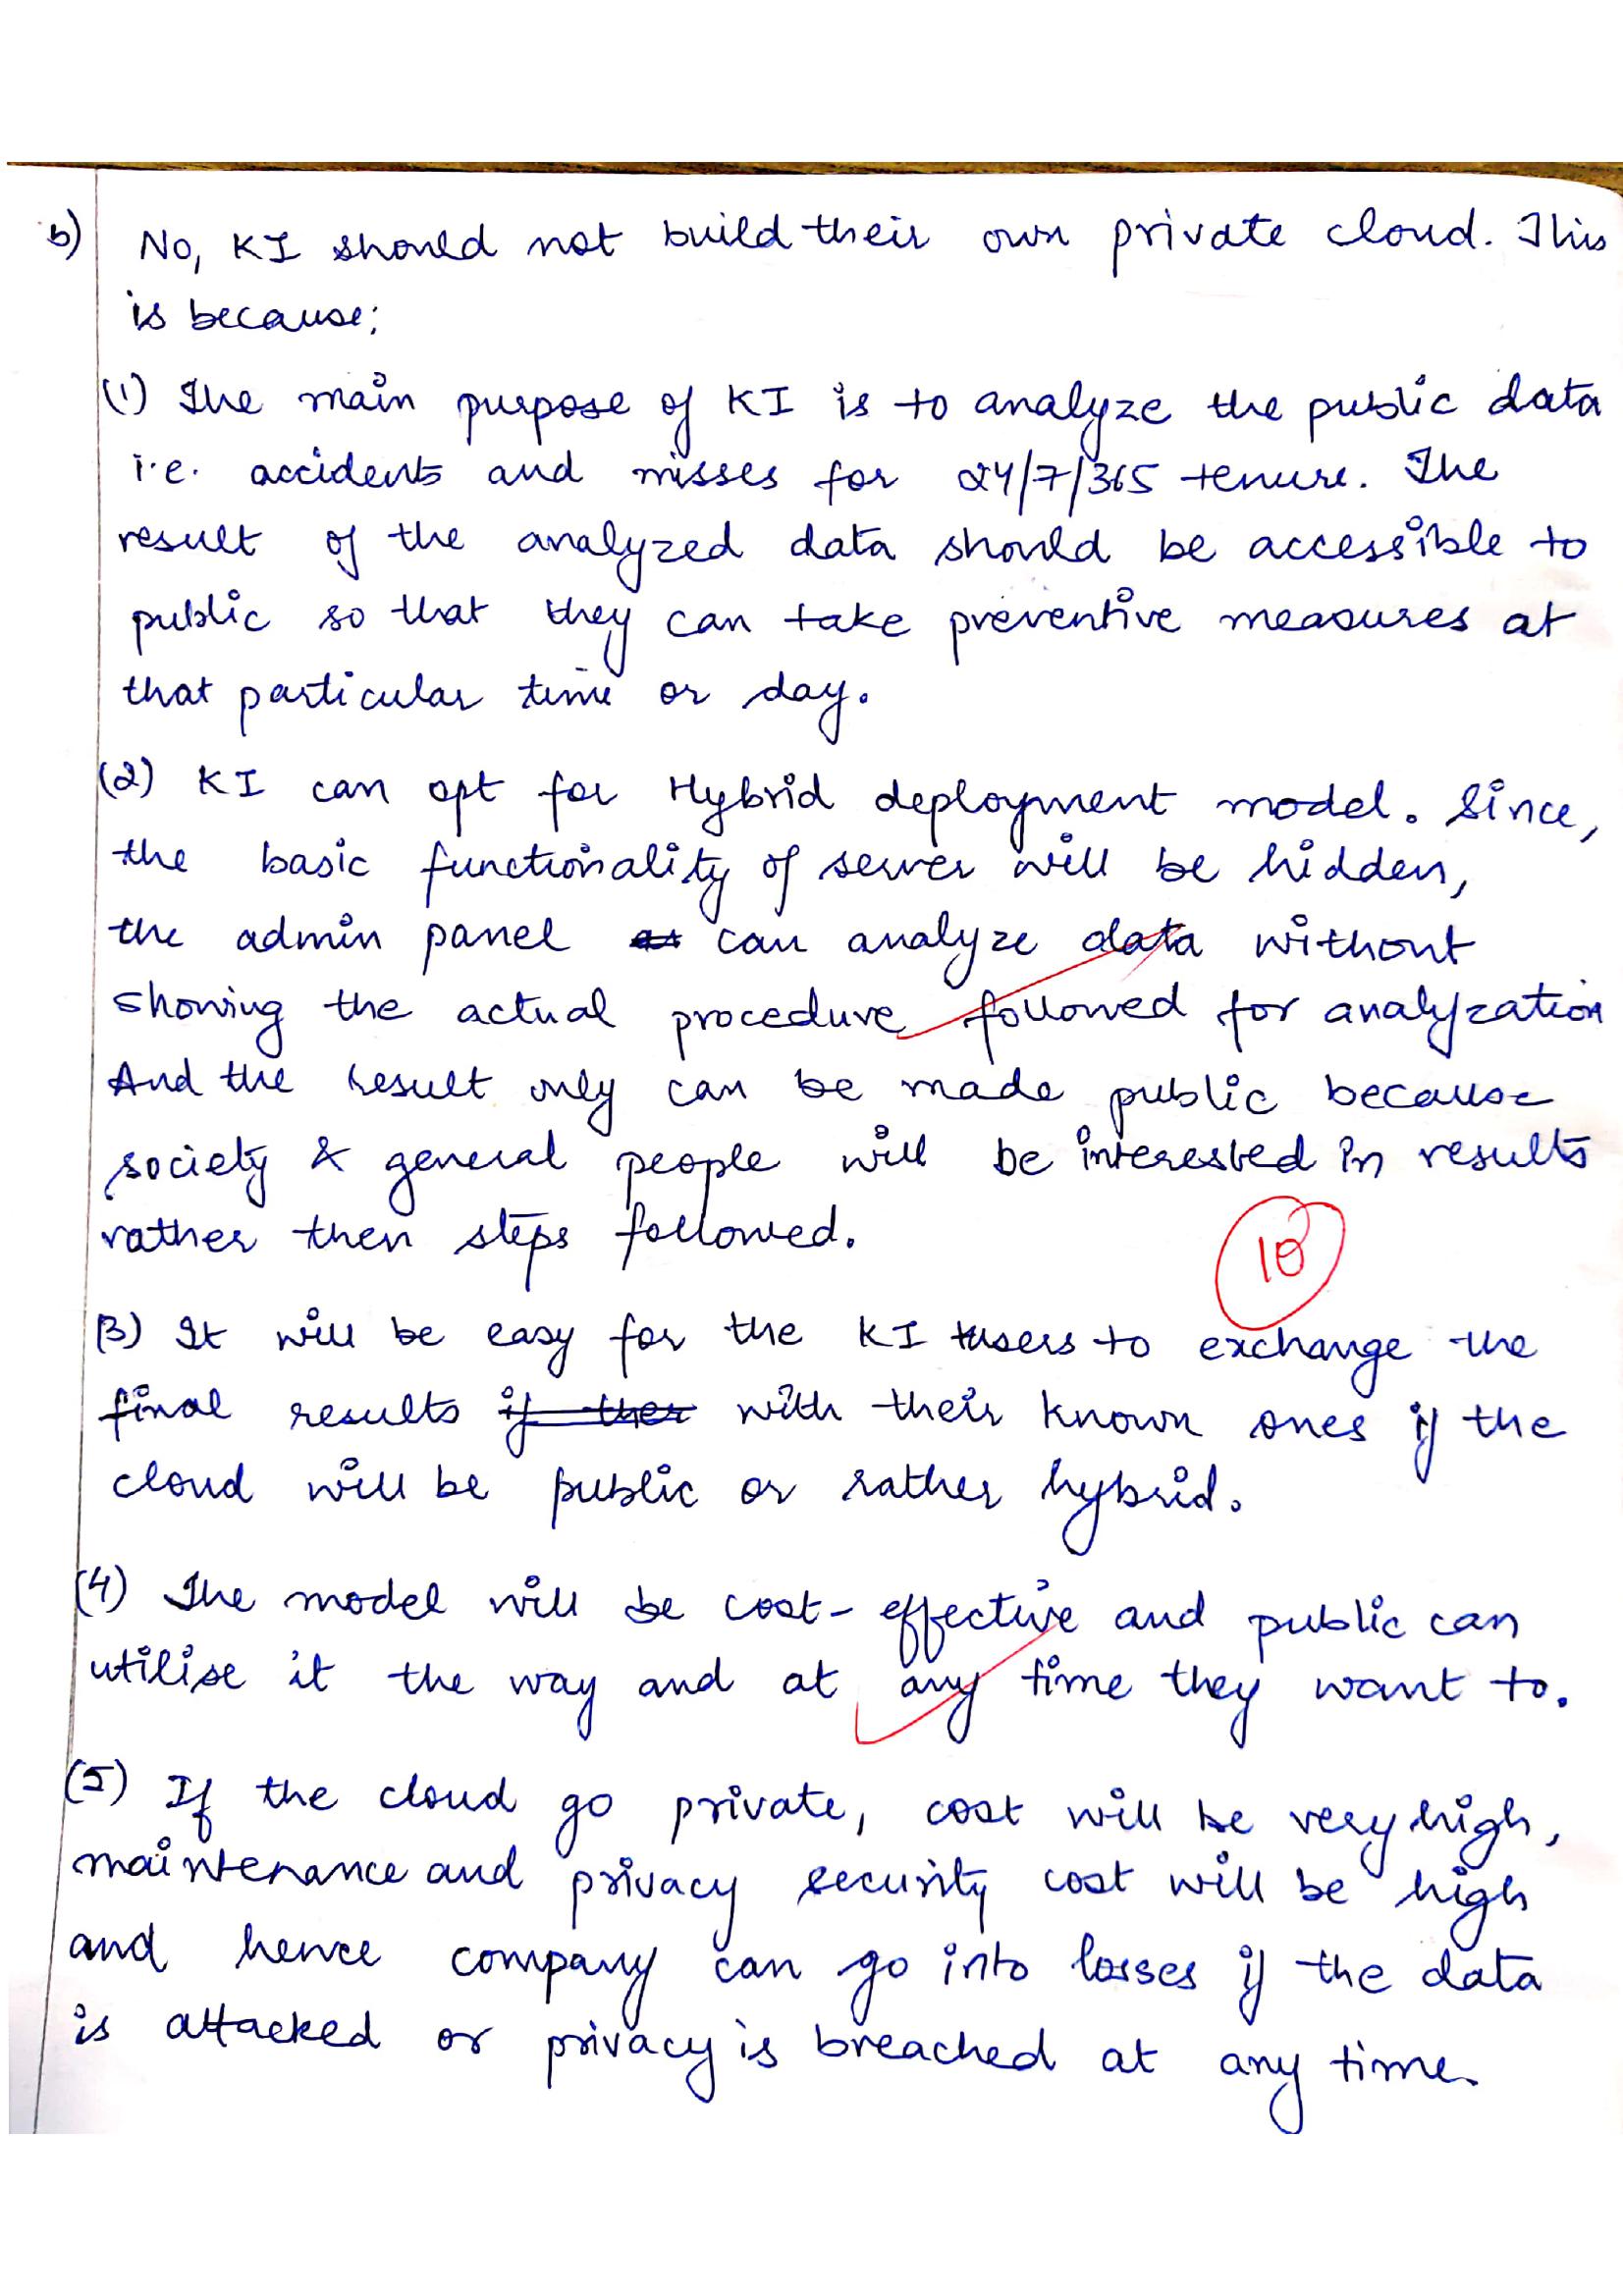 b) No, KI should not build their own private cloud. This
is because;
(1) The main purpose of KI is to analyze the public data
i.e. accidents and misses for 24/7/365 tenure. The
result of the analyzed data should be accessible to
public so that they can take preventive measures at
that particular time or day.
(2) KI can opt for Hybrid deployment model. Since,
the basic functionality of server will be hidden,
the admin panel as can analyze data without
showing the actual procedure followed for analyzation
And the result only can be made public because
society & general people will be interested in results
rather then steps followed.
10
(3) It will be easy for the KI users to exchange the
final results if ther with their known ones if the
cloud will be public or rather hybrid.
(4) The model will be cost-effective and public can
utilise it the way and at any time they want to.
(5) If the cloud go private, cost will be very high,
maintenance and privacy security cost will be high
and hence company can go into losses if the data
is attacked or privacy is breached at any time.